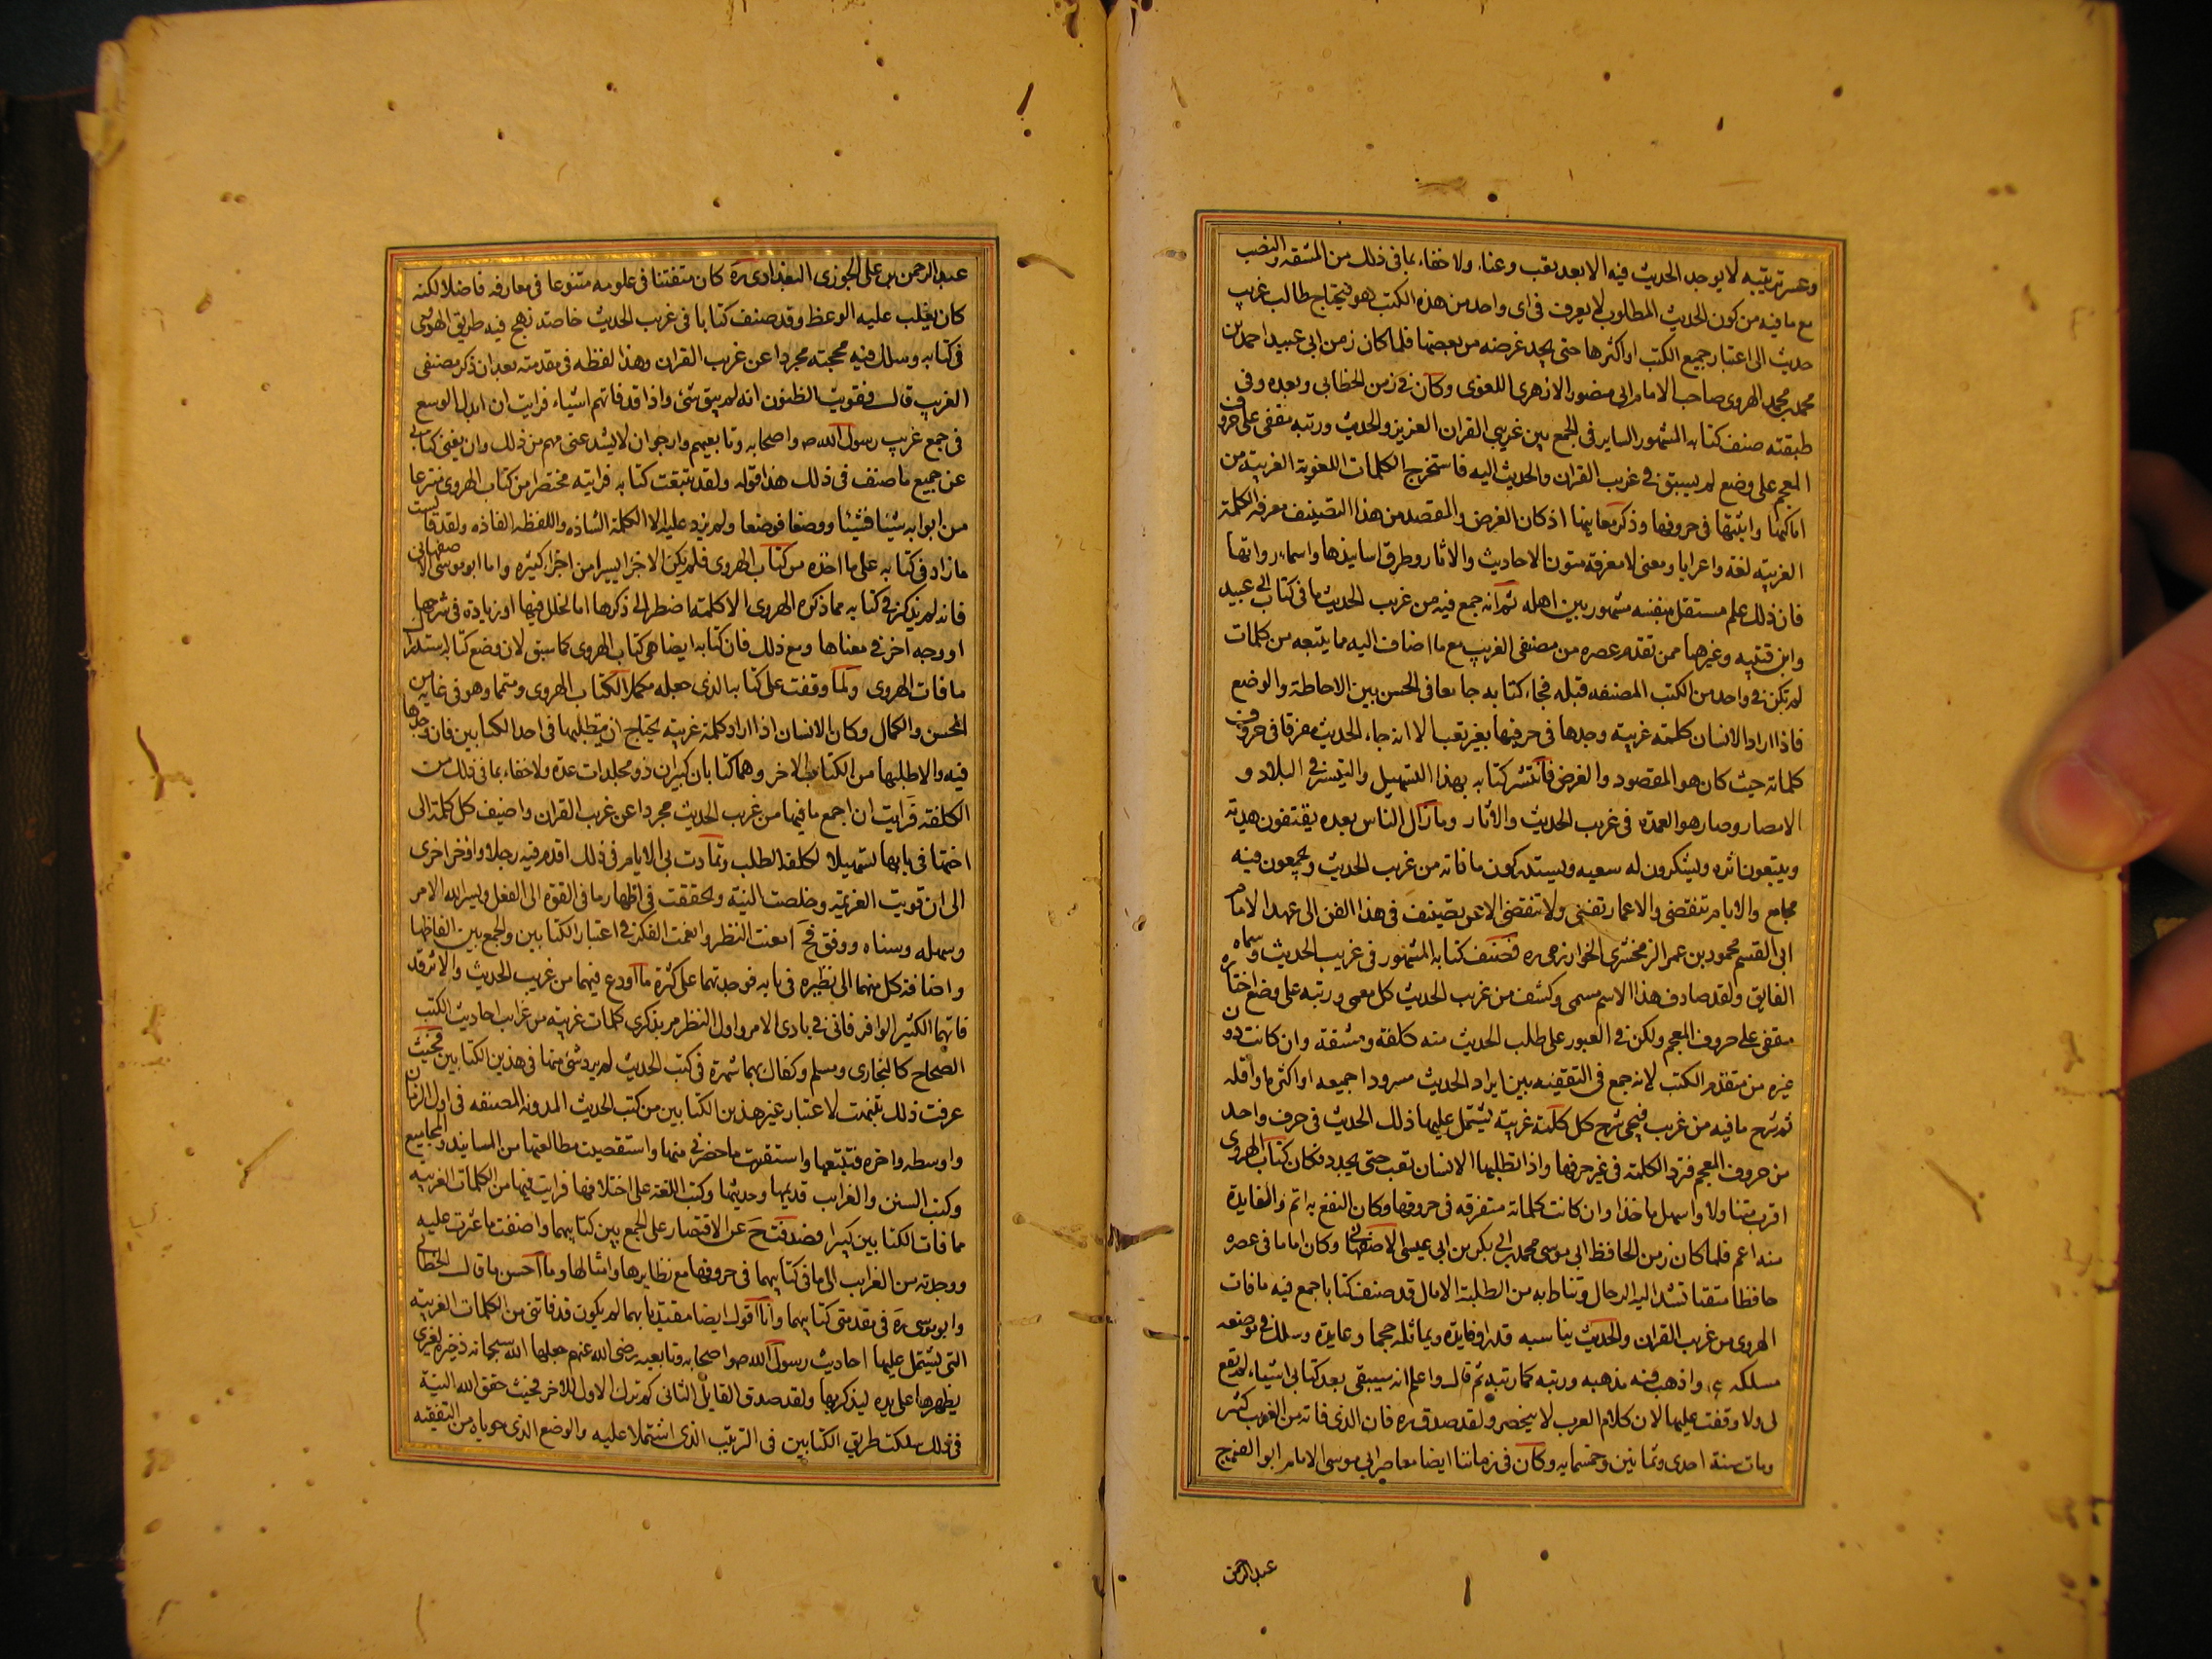 وعسر ترتيبه لا يوجد الحديث فيه الا بعد تعب وعناء ولا خفاء بما فى ذلك من المشقه والنصب
مع ما فيه من كون الحديث المطلوب لا يعرف فى اى واحد من هذه الكتب هو فيحتاج طالب غريب
حديث الى اعتبار جميع الكتب او اكثرها حتى يجد غرضه من بعضها فلما كان زمن ابى عبيد احمد بن
محمد بن محمد الهروى صاحب الامام ابى منصور الازهرى اللغوى وكان فى زمن الخطابى وبعده وفى
طبقته صنف كتابه المشهور الساير فى الجمع بين غريبى القران العزيز والحديث ورتبه مقفى على حروف
المعجم على وضع لم يسبق فى غريب القران والحديث اليه فاستخرج الكلمات اللغوية الغريبة من
اماكنها واثبتها فى حروفها وذكر معانيها اذ كان الغرض والمقصد من هذا التصنيف معرفه الكلمة
الغريبة لغة واعرابا ومعنى لا معرفة متون الاحاديث والاثار وطرق اسانيدها واسماء رواتها
فان ذلك علم مستقل بنفسه مشهور بين اهله ثم انه جمع فيه من غريب الحديث ما فى كتاب ابى عبيد
وابن قتيبه وغيرهما ممن تقدم عصره من مصنفى الغريب مع ما اضاف اليه مما يتبعه من كلمات
لم تكن فى واحد من الكتب المصنفه قبله فجاء كتابه جامعا فى الحسن بين الاحاطة والوضع
فاذا اراد الانسان كلمة غريبة وجدها فى حرفها بغير تعب الا انه جاء الحديث مفرقا فى حروف
كلماته حيث كان هو المقصود والغرض فانتشر كتابه بهذا التسهيل والتيسير فى البلاد و
الامصار وصار هو العمدة فى غريب الحديث والاثار وما زال الناس بعده يقتفون هديه
ويتبعون اثره ويشكرون له سعيه ويستدركون ما فاته من غريب الحديث ويجمعون فيه
مجاميع والايام تنقضى والاعمار تفنى ولا تنقضى الا عن تصنيف فى هذا الفن الى عهد الامام
ابى القسم محمود بن عمر الزمخشرى الخوارزمى ره فصنف كتابه المشهور فى غريب الحديث وسماه
الفايق ولقد صادف هذا الاسم مسمى وكشف من غريب الحديث كل معمى ورتبه على وضع اختاره
مقفى على حروف المعجم ولكن فى العبور على طلب الحديث منه كلفة ومشقة وان كانت دون
غيره من متقدم الكتب لانه جمع فى التقفيه بين ايراد الحديث مسرودا جميعه او اكثره او اقله
ثم شرح ما فيه من غريب فيجى شرح كل كلمة غريبة يشتمل عليها ذلك الحديث فى حرف واحد
من حروف المعجم فترد الكلمة فى غير حرفها واذا تطلبها الانسان تعب حتى يجدها فكان كتاب الهروى
اقرب متناولا واسهل ماخذا وان كانت كلماته متفرقه فى حروفها وكان النفع به اتم والفايدة
منه اعم فلما كان زمن الحافظ ابى موسى محمد بن ابى بكر بن ابى عيسى الاصفهانى وكان اماما فى عصره
حافظا متقنا تشد اليه الرحال وتناط به من الطلبة الامال قد صنف كتابا جمع فيه ما فات
الهروى من غريب القران والحديث يناسبه قدرا وفايدة ويماثله حجما وعايدة وسلك فى وضعه
مسلكه وذهب فيه مذهبه ورتبه كما رتبه ثم قال واعلم انه سيبقى بعد كتابى اشياء لم تقع
لى ولا وقفت عليها لان كلام العرب لا ينحصر ولقد صدق ره فان الذى فاته من الغريب كثير
ومات سنة احدى وثمانين وخمسمايه وكان فى زماننا ايضا معاصر ابى موسى الامام ابو الفرج
عبد الرحمن
عبد الرحمن بن على الجوزى البغدادى ره كان متفننا فى علومه متنوعا فى معارفه فاضلا لكنه
كان يغلب عليه الوعظ وقد صنف كتابا فى غريب الحديث خاصة نهج فيه طريق الهروى
فى كتابه وسلك فيه محجته مجردا عن غريب القران وهذا لفظه فى مقدمته بعد ان ذكر مصنفى
الغريب قال فقويت الظنون انه لم يبق شئ واذا قد فاتهم اشياء فرايت ان ابذل الوسع
فى جمع غريب رسول الله ص واصحابه وتابعيهم وارجوان لا يشد عنى مهم من ذلك وان يغنى كتابى
عن جميع ما صنف فى ذلك هذا قوله ولقد تتبعت كتابه فرايته مختصرا من كتاب الهروى منتزعا
من ابوابه شيئا فشيئا ووضعا فوضعا ولم يزد عليه الا الكلمة الشاذه واللفظه الفاذه ولقد قايست
ما زاد فى كتابه على ما اخذه من كتاب الهروى فلم يكن الا جزا يسيرا من اجزا كثيره واما ابو موسى الاصفهانى
فانه لم يذكر فى كتابه مما ذكره الهروى الا كلمة اضطر الى ذكرها اما لخلل فيها او زيادة فى شرحها
او وجه اخر فى معناها ومع ذلك فان كتابه ايضاهى كتاب الهروى كما سبق لان وضع كتابه استدراك
ما فات الهروى ولما وقفت على كتابه الذى جعله مكملا لكتاب الهروى ومتمما وهو فى غاية من
الحسن والكمال وكان الانسان اذا اراد كلمة غريبة يحتاج ان يتطلبها فى احد الكتابين فان وجدها
فيه والا طلبها من الكتاب الاخر وهما كتابان كبيران ذو مجلدات عدة ولا خفاء بما فى ذلك من
الكلفة فرايت ان اجمع ما فيهما من غريب الحديث مجردا عن غريب القران واضيف كل كلمة الى
اختها فى بابها تسهيلا لكلفة الطلب وتمادت بى الايام فى ذلك اقدم فيه رجلا واوخر اخرى
الى ان قويت العزيمة وخلصت النية وتحققت فى اظهار ما فى القوة الى الفعل ويسر الله الامر
وسهله وسناه ووفق فح امعنت النظر وانعمت الفكر فى اعتبار الكتابين والجمع بين الفاظهما
واضافة كل منهما الى نظيره فى بابه فوجدتهما على كثرة ما اودع فيهما من غريب الحديث والاثر قد
فاتهما الكثير الوافر فانى فى بادى الامر واول النظر مر بذكرى كلمات غريبه من غرايب احاديث الكتب
الصحاح كالبخارى ومسلم وكفاك بهما شهرة فى كتب الحديث لم يرد شئ منها فى هذين الكتابين فحيث
عرفت ذلك تنبهت لاعتبار غير هذين الكتابين من كتب الحديث المدونه المصنفه فى اول الزمان
واوسطه واخره فتتبعتها واستقريت ما حضرنى منها واستقصيت مطالعتها من المسانيد والمجاميع
وكتب السنن والغرايب قديمها وحديثها وكتب اللغة على اختلافها فرايت فيها من الكلمات الغريبه
مما فات الكتابين كثيرا فصدفت ح عن الاقتصار على الجمع بين كتابيهما واضفت ما عثرت عليه
ووجدته من الغرايب الى ما فى كتابيهما فى حروفها مع نظايرها وامثالها وما احسن ما قال الخطابى
وابو موسى ره فى مقدمتى كتابيهما وانا اقول ايضا مقتديا بهما لم يكون قد فاتنى من الكلمات الغريبه
التى تشتمل عليها احاديث رسول الله ص واصحابه وتابعيه رضى الله عنهم جعلها الله سبحانه ذخيرة لغيرى
يظهرها على يده ليذكر بها ولقد صدق القايل الثانى كم ترك الاول للاخر فحيث حقق الله النية
فى ذلك سلكت طريق الكتابين فى الترتيب الذى اشتملا عليه والوضع الذى حوياه من التقفيه